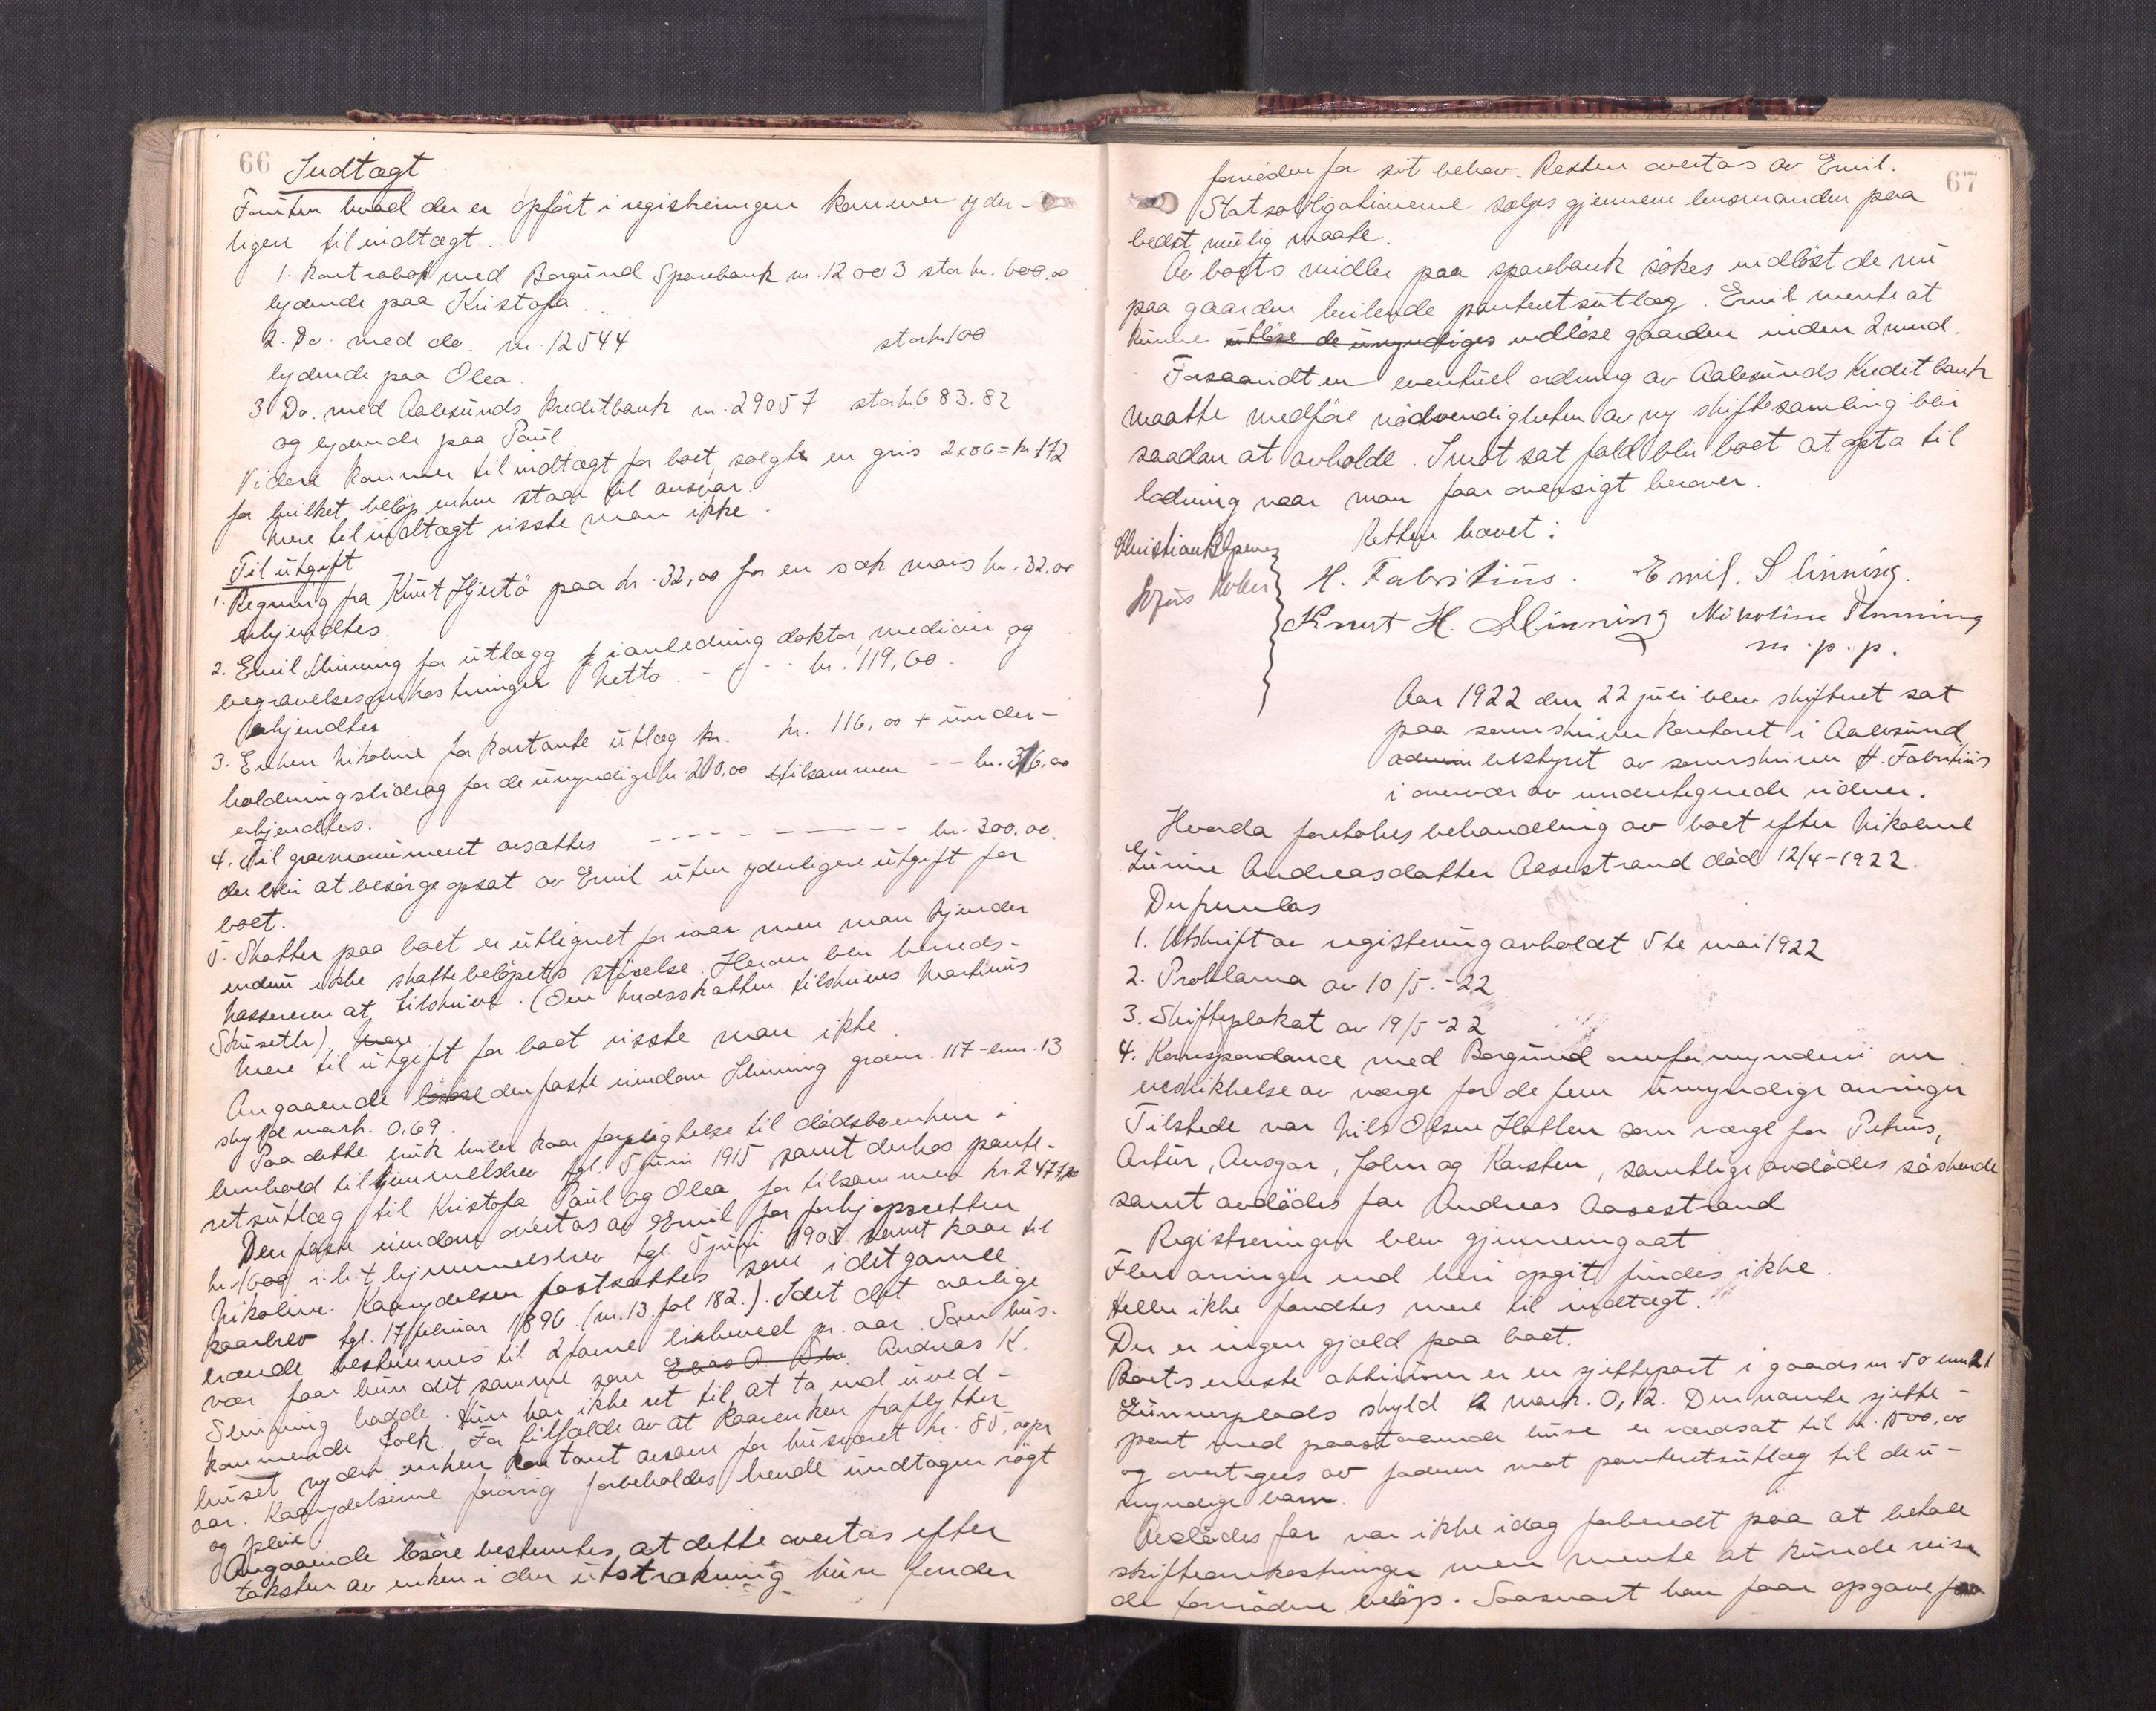 66
Indtægt
Foruten hvad der er opført i registreringen kommer yder-
ligere til indtægt.
1. Kontrabok med Borgund Sparebank nr. 12003 stor kr. 600,00
lydende paa Kristofa
2. Do. med do. nr. 12544 stor kr 100
lydende paa Olea.
3 Do. med Aalesunds Kreditbank nr. 29057 stor kr 683.82
og lydende paa Paul
Videre kommer til indtægt for boet, solgte en gris 2x86 = kr 172
for hvilket beløp enken staar til ansvar.
Mere til indtægt visste man ikke.
Til utgift
1. Regning fra Knut Hjertø paa kr. 32,00 for en sæk mais kr. 32,00
erkjendtes.
2. Emil Slinning for utlægg i anledning doktor, medicin og
begravelsesomkostninger Netto - - - kr. 119,60.
erkjendtes
3. Enken Nikoline for kontante utlæg kr. kr. 116,00 + under-
holdningsbidrag for de umyndige kr. 200,00 tilsammen -- kr. 316,00
erkjendtes.
4. Til gravmonument avsættes - - - - - - - kr. 300,00.
der blir at besørge opsat av Emil uten yderligere utgift for
boet.
5. Skatter paa boet er utlignet for iaar men man kjender
endnu ikke skattebeløpets størrelse. Herom blir herreds-
kassereren at tilskrive. (Om hredsskatten tilskrives Martinus
Skuseth), Mere
Mere til utgift for boet visste man ikke.
Angaaende løsøre den faste eiendom Slinning gaardsnr. 117 - bnr. 13
skyld mark. 0,69.
Paa dette bruk hviler kaar forpligtelse til dødsboenken i
henhold til hjemmelsbrev tgl. 5 juni 1915 samt derhos pante-
retsutlæg til Kristofa Paul og Olea for tilsammen kr. 2477,20
Den faste eiendom overtas av Emil for forkjøpsretten
kr. 1600 i h.t. hjemmelsbrev tgl. 5 juni 1905 samt kaar til
Nikoline. Kaarydelsen fastsættes som i det gamle
kaarbrev tgl. 17 februar 1896 (nr. 13. fol 182.). Idet det aarlige
brænde bestemmes til 2 favne birkeved pr. aar. Som hus-
vær faar hun det samme som Andreas K.
Slinning hadde. Hun har ikke ret til at ta ind uved-
kommende folk. For tilfælde av at kaarenken fraflytter
huset, nyder enken kontant avsavn for husværet kr. 85,00 pr
aar. Kaarydelserne forøvrig forbeholdes hende undtagen røgt
og pleie.
Angaaende løsøre bestemtes, at dette overtas efter
taksten av enken i den utstrækning hun finder
67
fornøden for sit behov. Resten overtas av Emil.
Statsobligationerne sælges gjennem lensmanden paa
bedst mulig maate.
Av boets midler paa sparebank søkes indløst de nu
paa gaarden heilende panteretsutlæg. Emil mente at
kunne utløse de umyndiges indløse gaarden inden 2 mnd.
Forsaavidt en eventuel ordning av Aalesunds Kreditbank
maatte medføre nødvendigheten av ny skiftesamling blir
saadan at avholde. I mot sat fald blir boet at opta til
lodning naar man faar oversigt herover.
Retten hævet:
H. Fabritius. Emil. Slinning.
Knut H. Slinning Nikoline Slinning
m.p.p.
Aar 1922 den 22 juli blev skifteret sat
paa sorenskriverkontoret i Aalesund
admin bestyret av sorenskriver H. Fabritius
i overvær av undertegnede vidner.
Hvorda foretokes behandling av boet efter Nikoline
Gurine Andreasdatter Aasestrand død 12/4-1922.
Der fremlas
1. Utskrift av registrering avholdt 5te mai 1922
2. Proklama av 10/5.-22
3. Skifteplakat av 19/5-22
4. Korrespondance med Borgund overformynderi om
beskikkelse av verge for de fem umyndige arvinger
Tilstede var Nils Olsen Hatlen som værge for Petrus,
Artur, Ansgar, John og Karsten, samtlige avdødes søskende
samt avdødes far Andreas Aasestrand
Registreringen blev gjennemgaat
Flere arvinger end heri opgit findes ikke.
Heller ikke fandtes mere til indtægt.
Der er ingen gjæld paa boet.
Boets eneste aktivum er en sjettepart i gaardsnr. 50 bnr 21
Gunnerplads skyld mark. 0,12. Den nævnte sjette-
part med paastaaende huse er værdsat til kr. 1500,00
og overtages av faderen mot panteretsutlæg til de u-
myndige barn.
Avdødes far var ikke idag forberedt paa at betale
skifteomkostninger men mente at kunde reise
de fornødne beløp. Saasnart han faar opgave paa